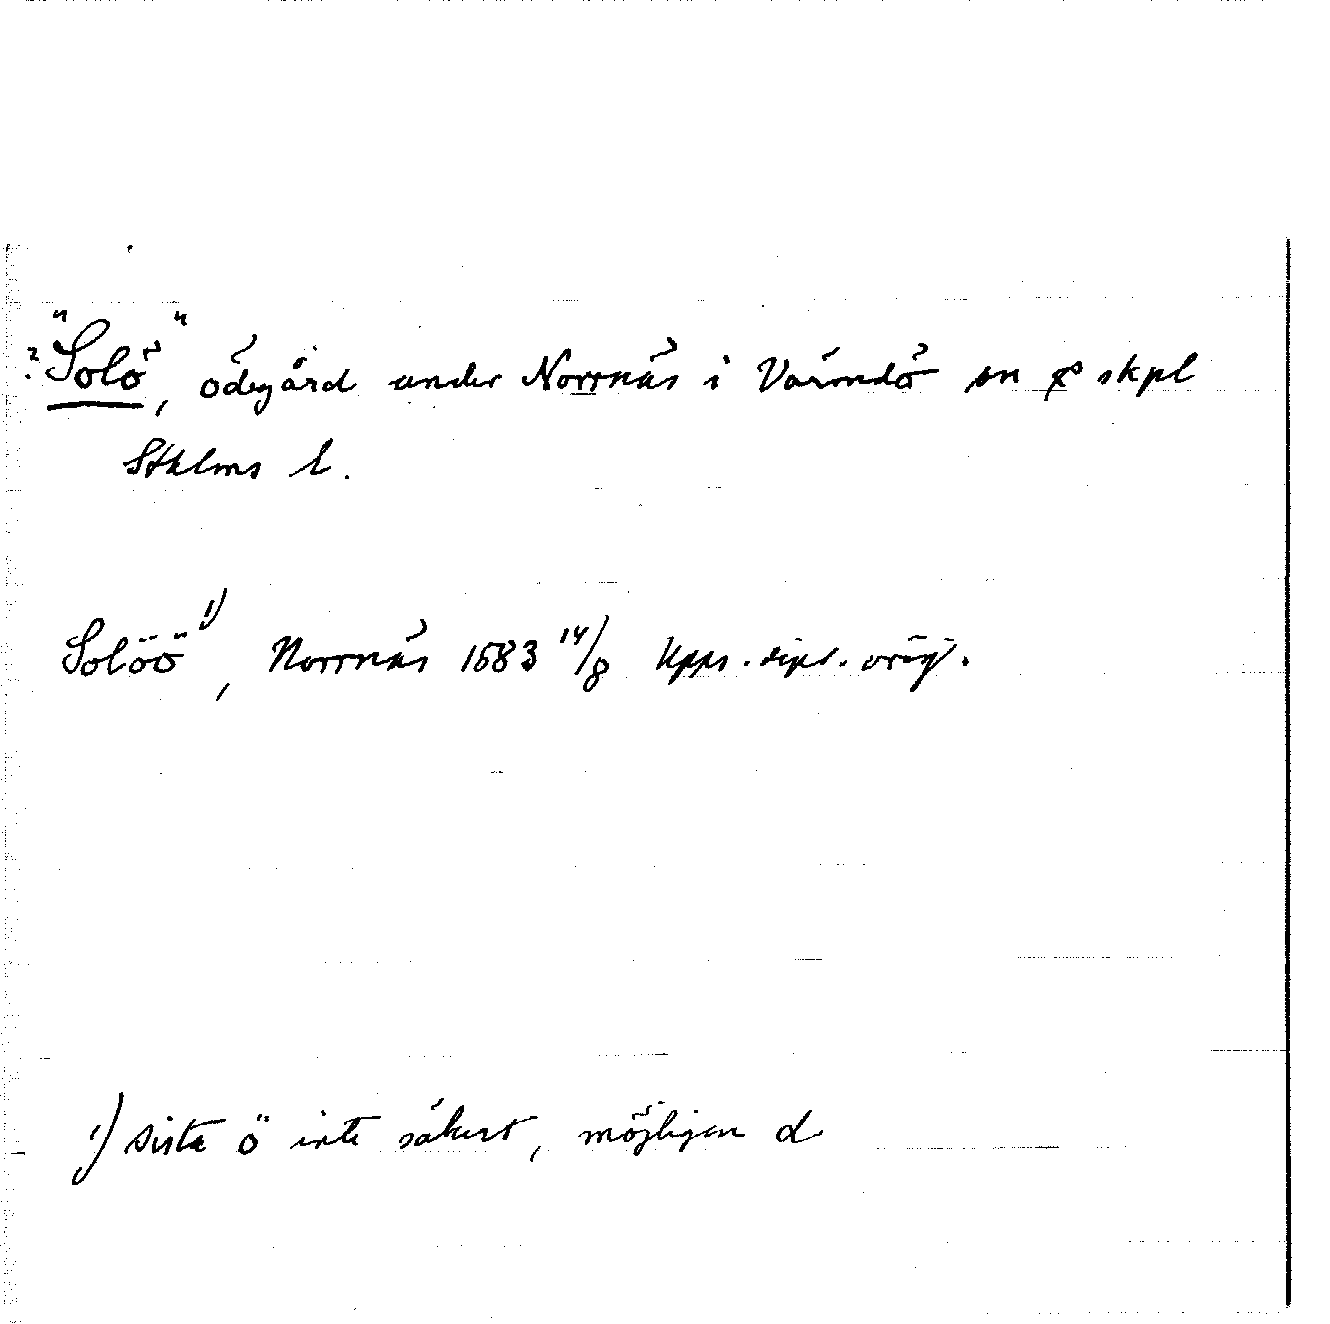 ? "Solö", ödegård under Norrnäs i Värmdö sn o skpl
Sthlms l.
Solöö 1), Norrnäs 1583 14/8 Upps. dipl. orig.
1) sista ö inte säkert, möjligen d